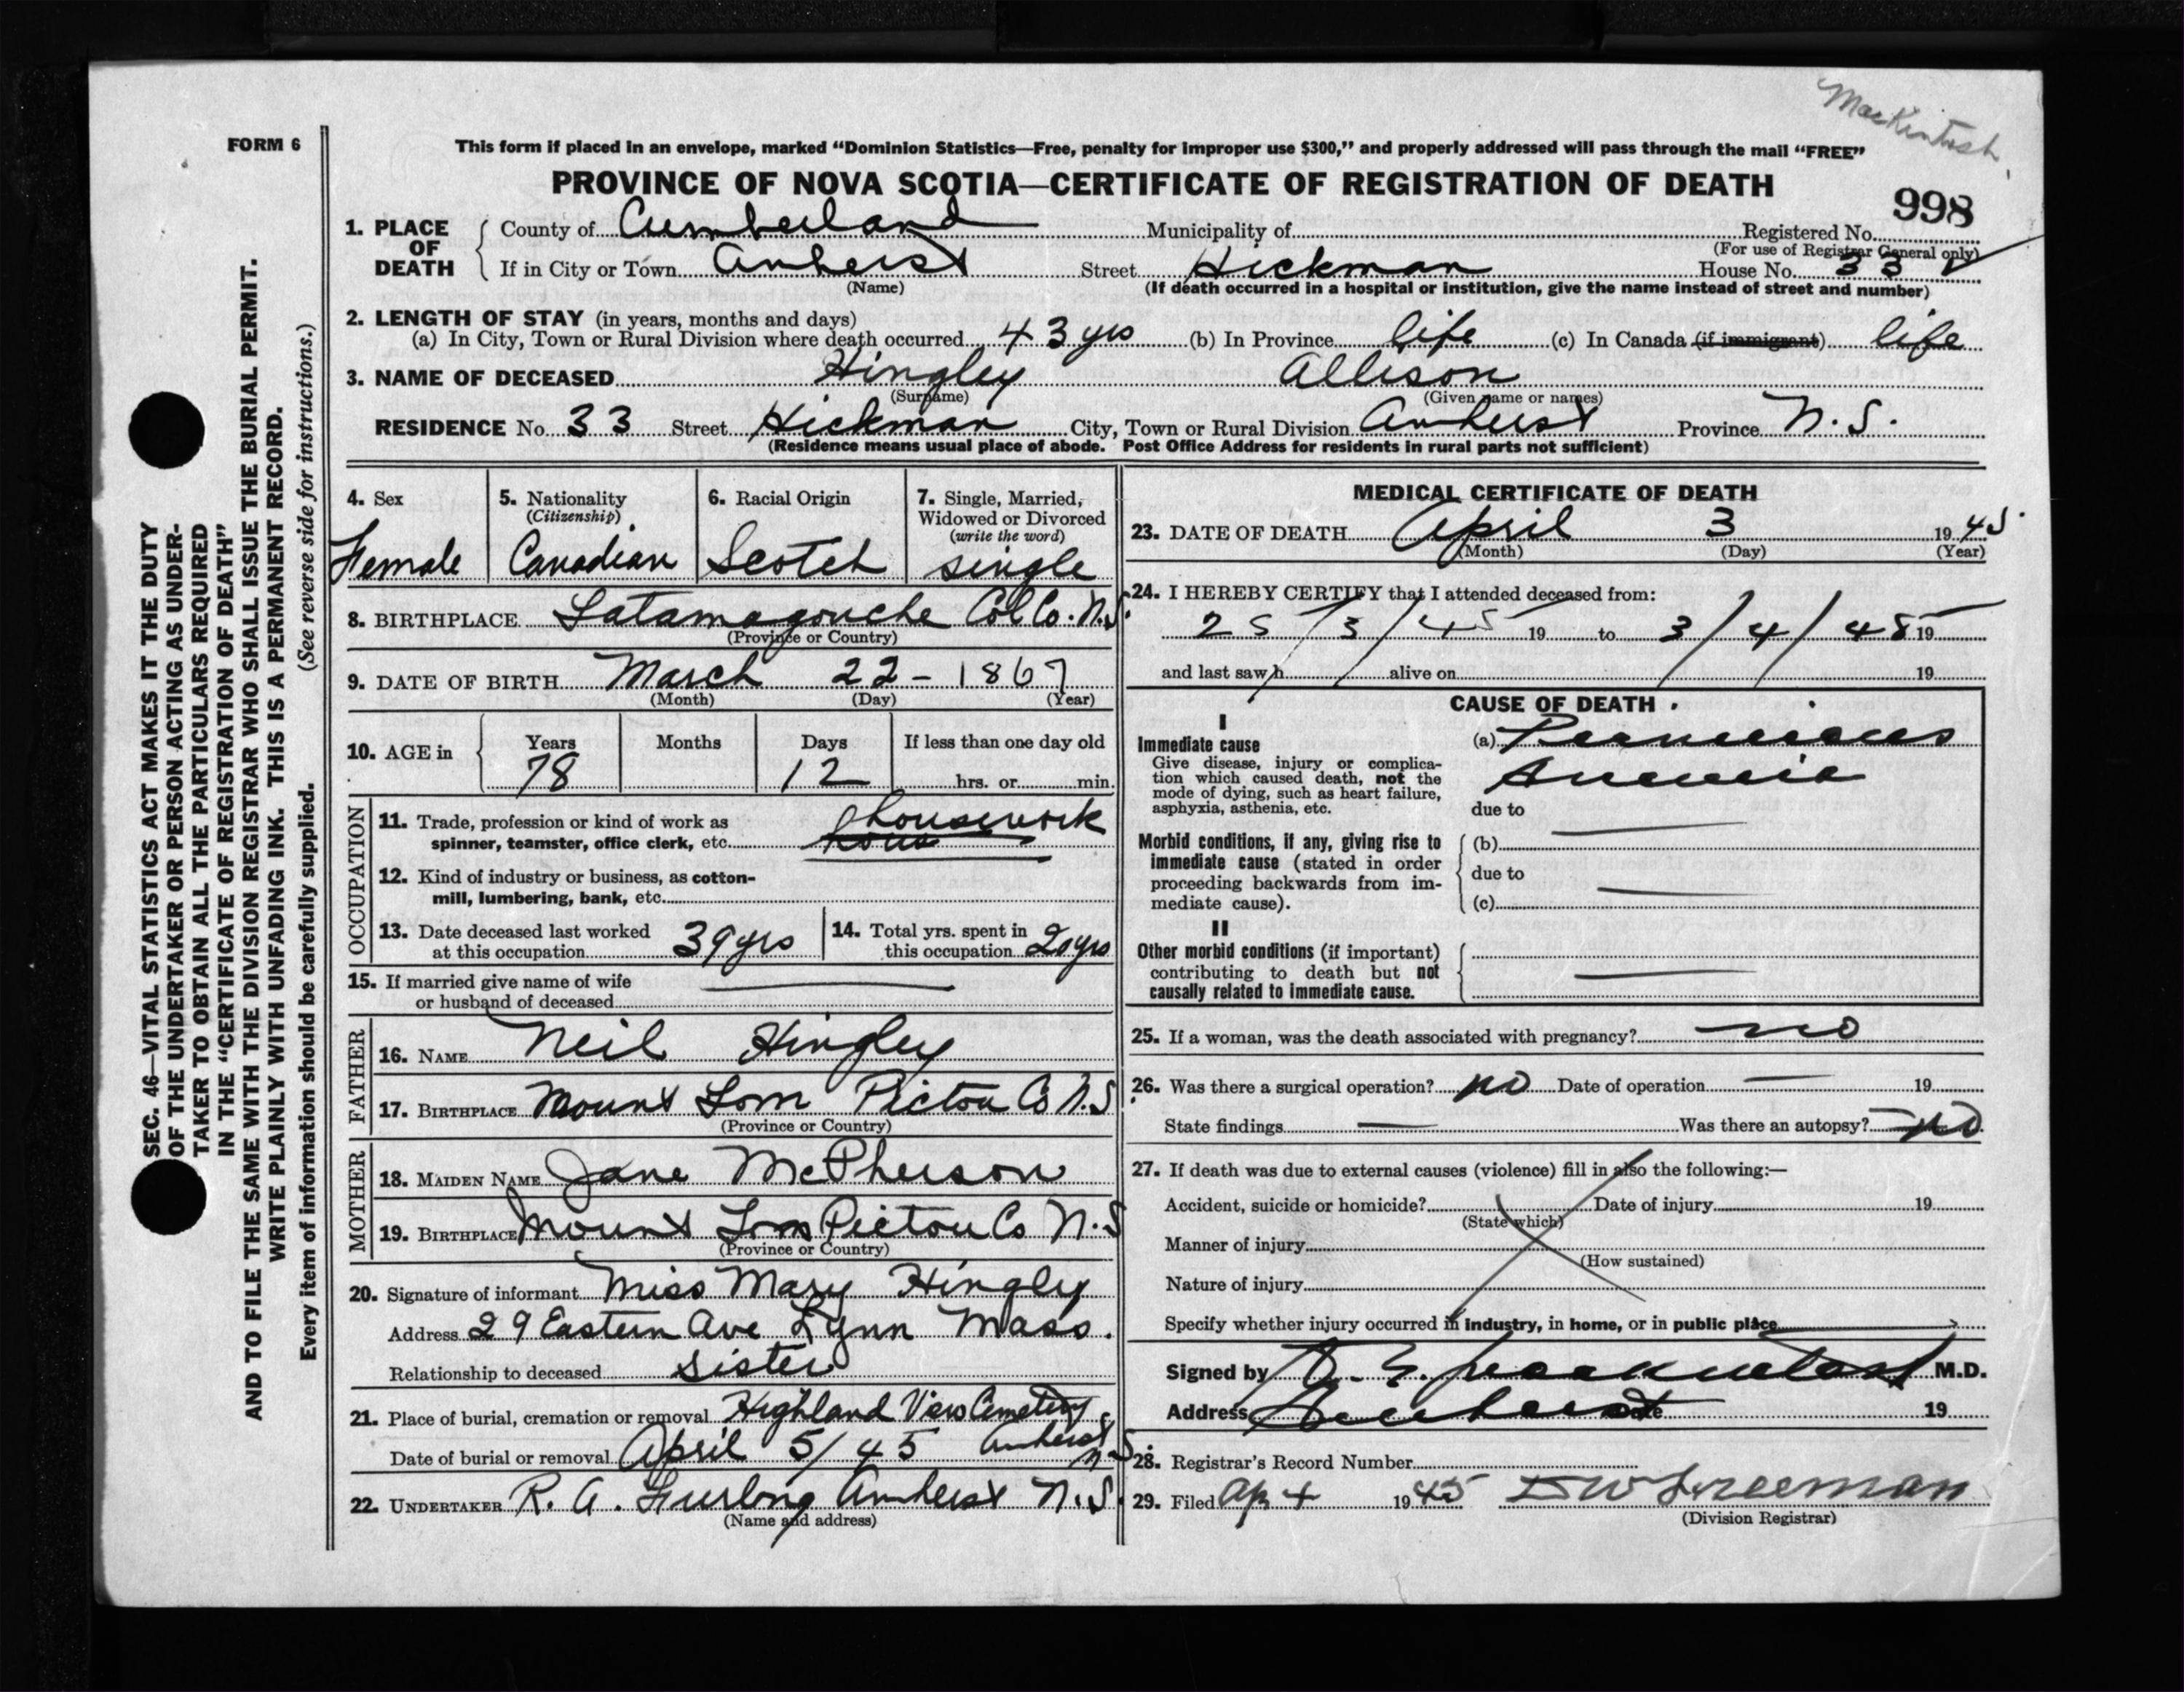 MacKintosh
FORM 6
This form if placed in an envelope, marked “Dominion Statistics—Free, penalty for improper use $300,” and properly addressed will pass through the mail “FREE”
PROVINCE OF NOVA SCOTIA—CERTIFICATE OF REGISTRATION OF DEATH
998
1. PLACE OF DEATH County of Cumberland Municipality of Registered No.
(For use of Registrar General only)
If in City or Town Amherst Street Hickman House No. 33
(Name) (If death occurred in a hospital or institution, give the name instead of street and number)
2. LENGTH OF STAY (in years, months and days)
(a) In City, Town or Rural Division where death occurred 43 yrs (b) In Province life (c) In Canada (if immigrant) life
3. NAME OF DECEASED Hingley Allison
(Surname) (Given name or names)
RESIDENCE No. 33 Street Hickman City, Town or Rural Division Amherst Province N.S.
(Residence means usual place of abode. Post Office Address for residents in rural parts not sufficient)
4. Sex
Female
5. Nationality
(Citizenship)
Canadian
6. Racial Origin
Scotch
7. Single, Married,
Widowed or Divorced
(write the word)
single
8. BIRTHPLACE Tatamagouche Col Co. N.S.
(Province or Country)
9. DATE OF BIRTH March 22 - 1867
(Month) (Day) (Year)
10. AGE in Years Months Days If less than one day old
78 12 hrs. or min.
OCCUPATION
11. Trade, profession or kind of work as
spinner, teamster, office clerk, etc. housework
hous
12. Kind of industry or business, as cotton-
mill, lumbering, bank, etc.
13. Date deceased last worked
at this occupation 39 yrs
14. Total yrs. spent in
this occupation 20 yrs
15. If married give name of wife
or husband of deceased
FATHER
16. NAME Neil Hingley
17. BIRTHPLACE Mount Tom Pictou Co N.S
(Province or Country)
MOTHER
18. MAIDEN NAME Jane McPherson
19. BIRTHPLACE Mount Tom Pictou Co N.S
(Province or Country)
20. Signature of informant Miss Mary Hingley
Address 29 Eastern Ave Lynn Mass.
Relationship to deceased sister
21. Place of burial, cremation or removal Highland View Cemetery
Date of burial or removal April 5/45 Amherst N.S.
22. UNDERTAKER R. A. Furlong Amherst N.S.
(Name and address)
MEDICAL CERTIFICATE OF DEATH
23. DATE OF DEATH April 3 1945
(Month) (Day) (Year)
24. I HEREBY CERTIFY that I attended deceased from:
25/3/45 19 to 3/4/45 19
and last saw h alive on 19
CAUSE OF DEATH
I
Immediate cause
Give disease, injury or complica-
tion which caused death, not the
mode of dying, such as heart failure,
asphyxia, asthenia, etc.
(a) Pernicious
Anemia
due to
Morbid conditions, if any, giving rise to
immediate cause (stated in order
proceeding backwards from im-
mediate cause).
(b)
due to
(c)
II
Other morbid conditions (if important)
contributing to death but not
causally related to immediate cause.
25. If a woman, was the death associated with pregnancy? no
26. Was there a surgical operation? no Date of operation — 19
State findings — Was there an autopsy? no
27. If death was due to external causes (violence) fill in also the following:—
Accident, suicide or homicide? Date of injury 19
(State which)
Manner of injury
(How sustained)
Nature of injury
Specify whether injury occurred in industry, in home, or in public place
Signed by MacKintosh M.D.
Address Amherst Date 19
28. Registrar’s Record Number
29. Filed Ap 4 1945 D W Freeman
(Division Registrar)
SEC. 46—VITAL STATISTICS ACT MAKES IT THE DUTY
OF THE UNDERTAKER OR PERSON ACTING AS UNDER-
TAKER TO OBTAIN ALL THE PARTICULARS REQUIRED
IN THE “CERTIFICATE OF REGISTRATION OF DEATH”
AND TO FILE THE SAME WITH THE DIVISION REGISTRAR WHO SHALL ISSUE THE BURIAL PERMIT.
WRITE PLAINLY WITH UNFADING INK. THIS IS A PERMANENT RECORD.
Every item of information should be carefully supplied. (See reverse side for instructions.)